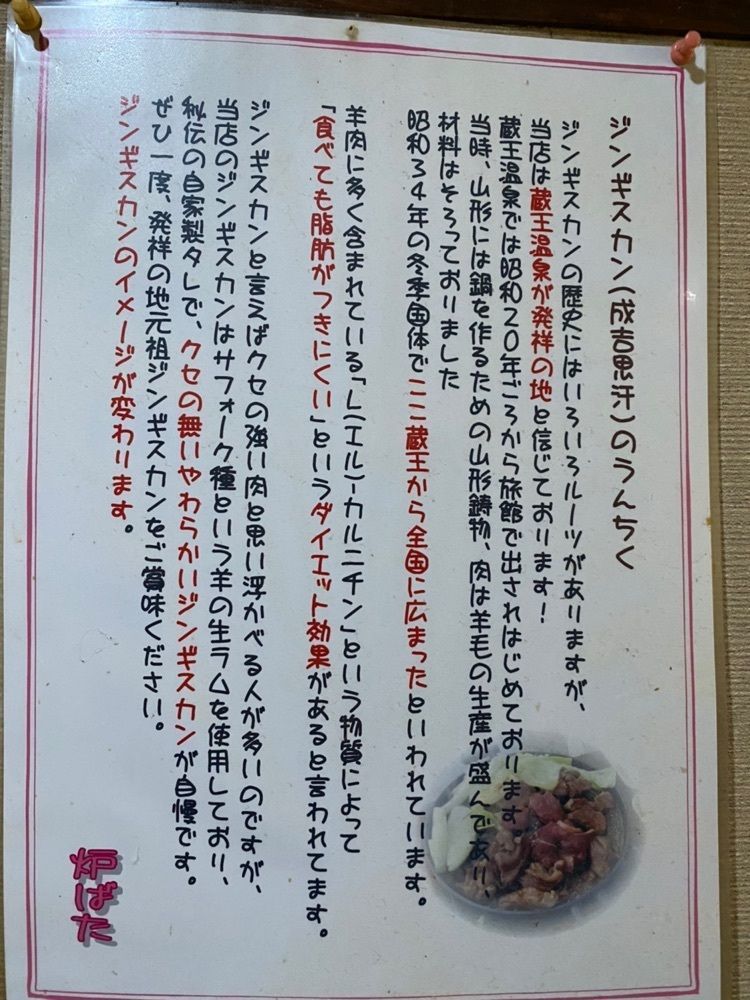 ジンギスカン(成吉思汗)のうんちく
ジンギスカンの歴史にはいろいろルーツがありますが、
当店は蔵王温泉が発祥の地と信じております!
蔵王温泉では昭和20年ごろから旅館で出されはじめております。
当時、山形には鍋を作るための山形鋳物、肉は羊毛の生産が盛んであり、
材料はそろっておりました
昭和34年の冬季国体でここ蔵王から全国に広まったといわれています。
羊肉に多く含まれている「L(エル)ーカルニチン」という物質によって
「食べても脂肪がつきにくい」というダイエット効果があると言われてます。
ジンギスカンと言えばクセの強い肉と思い浮かべる人が多いのですが、
当店のジンギスカンはサフォーク種という羊の生ラムを使用しており、
秘伝の自家製タレで、クセの無いやわらかいジンギスカンが自慢です。
ぜひ一度、発祥の地元祖ジンギスカンをご賞味ください。
ジンギスカンのイメージが変わります。
炉ばた